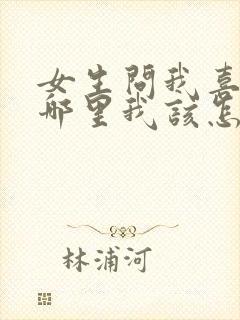 女生問我喜
哪里我該怎
林浦河